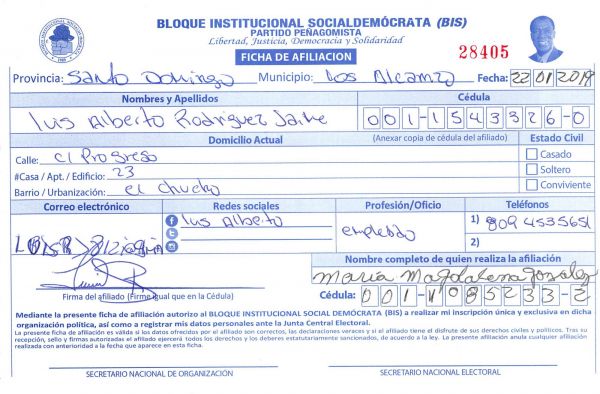 BLOQUE INSTITUCIONAL SOCIALDEMÓCRATA (BIS)
PARTIDO PEÑAGOMISTA
Libertad, Justicia, Democracia y Solidaridad
FICHA DE AFILIACION
28405
Provincia: Santo Domingo Municipio: Los Alcarrizo Fecha: 22 01 2019
Nombres y Apellidos Cédula
luis Alberto Rodriguez Jaime 001-1543326-0
Domicilio Actual (Anexar copia de cédula del afiliado) Estado Civil
Calle: El Progreso
#Casa / Apt. / Edificio: 23
Barrio / Urbanización: el chucho
Casado
Soltero
Conviviente
Correo electrónico Redes sociales Profesión/Oficio Teléfonos
luis Alberto
empleado
1) 809 4535651
2)
Nombre completo de quien realiza la afiliación
Maria Magdalena Gonzalez
Cédula: 001-1085233-2
Firma del afiliado (Firme igual que en la Cédula)
Mediante la presente ficha de afiliación autorizo al BLOQUE INSTITUCIONAL SOCIAL DEMÓCRATA (BIS) a realizar mi inscripción única y exclusiva en dicha
organización política, así como a registrar mis datos personales ante la Junta Central Electoral.
La presente ficha de afiliación es válida si los datos ofrecidos por el afiliado son correctos, las declaraciones veraces y si el afiliado tiene el disfrute de sus derechos civiles y políticos. Tras su
recepción, sello y firmas autorizadas el afiliado ejercerá todos los derechos y los deberes estatutariamente sancionados, de acuerdo a la ley. La presente afiliación anula cualquier afiliación
realizada con anterioridad a la fecha que aparece en esta ficha.
SECRETARIO NACIONAL DE ORGANIZACIÓN SECRETARIO NACIONAL ELECTORAL